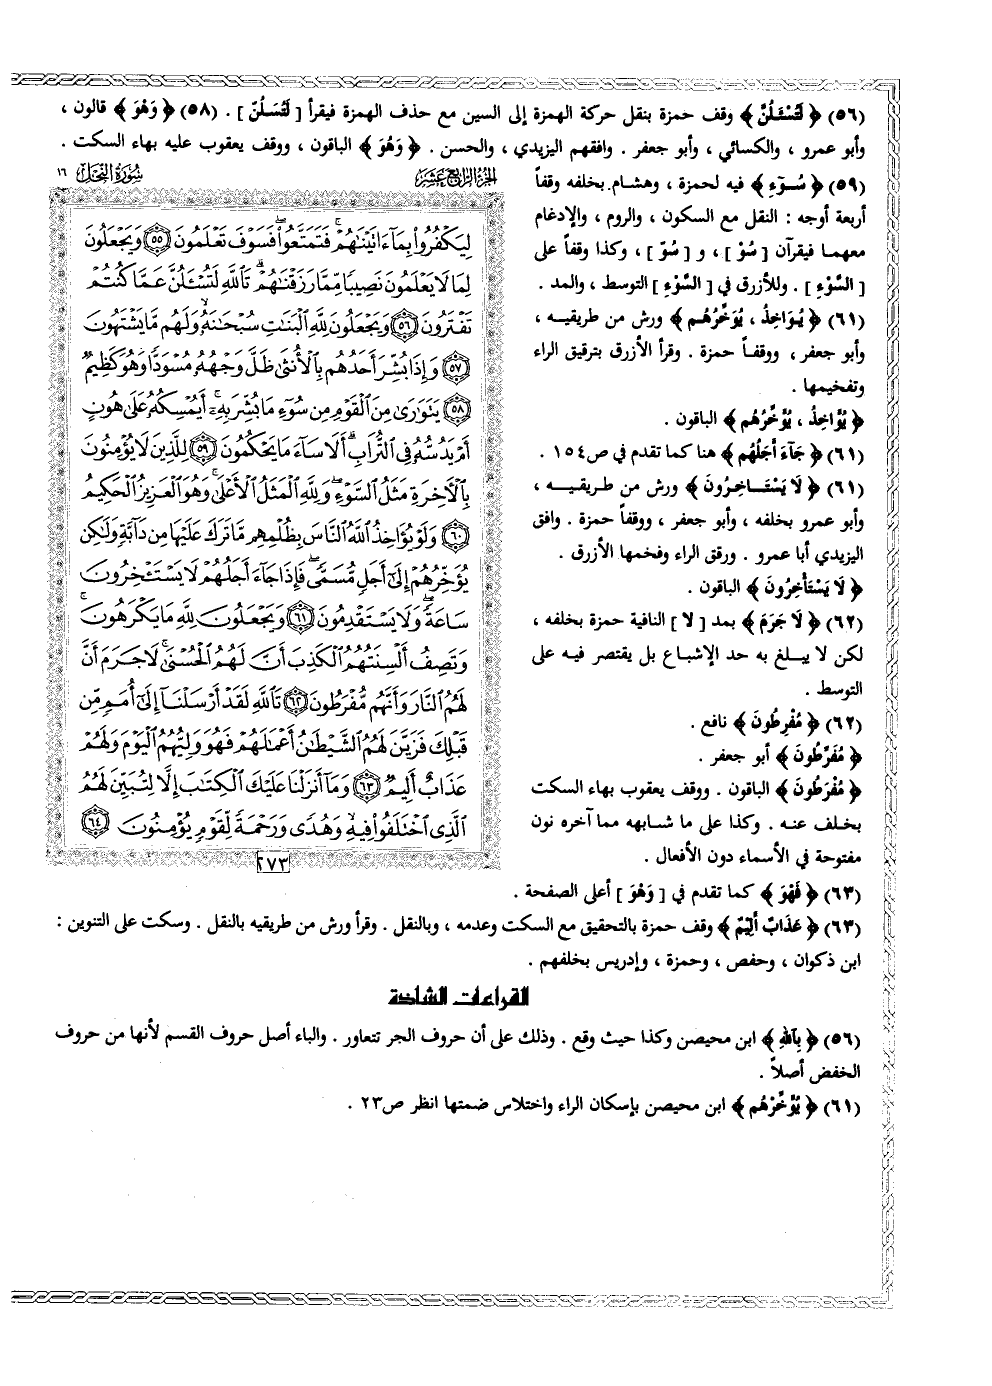 (٥٦) ﴿ لَتُسْئَلُنَّ ﴾ وقف حمزة بنقل حركة الهمزة إلى السين مع حذف الهمزة فيقرأ [ لَتُسَلُنَّ ] . (٥٨) ﴿ وَهْوَ ﴾ قالون ،
وأبو عمرو ، والكسائي ، وأبو جعفر . وافقهم اليزيدي ، والحسن . ﴿ وَهُوَ ﴾ الباقون ، ووقف يعقوب عليه بهاء السكت .
(٥٩) ﴿ سُوٓءِ ﴾ فيه لحمزة ، وهشام بخلفه وقفاً
أربعة أوجه : النقل مع السكون ، والروم ، والإدغام
معهما فيقرآن [ سُوْ ] ، و [ سُوّ ] ، وكذا وقفاً على
[ السَّوْءِ ] . وللأزرق في [ السَّوْءِ ] التوسط ، والمد .
(٦١) ﴿ يُوَاخِذُ ، يُوَخِّرُهُم ﴾ ورش من طريقيه ،
وأبو جعفر ، ووقفاً حمزة . وقرأ الأزرق بترقيق الراء
وتفخيمها .
﴿ يُؤَاخِذُ ، يُؤَخِّرُهُم ﴾ الباقون .
(٦١) ﴿ جَآءَ أَجَلُهُم ﴾ هنا كما تقدم في ص١٥٤ .
(٦١) ﴿ لَا يَسْتَـاخِرُونَ ﴾ ورش من طريقيه ،
وأبو عمرو بخلفه ، وأبو جعفر ، ووقفاً حمزة . وافق
اليزيدي أبا عمرو . ورقق الراء وفخمها الأزرق .
﴿ لَا يَسْتَأْخِرُونَ ﴾ الباقون .
(٦٢) ﴿ لَا جَرَمَ ﴾ بمد [ لا ] النافية حمزة بخلفه ،
لكن لا يبلغ به حد الإشباع بل يقتصر فيه على
التوسط .
(٦٢) ﴿ مُفْرِطُونَ ﴾ نافع .
﴿ مُفَرِّطُونَ ﴾ أبو جعفر .
﴿ مُفْرَطُونَ ﴾ الباقون . ووقف يعقوب بهاء السكت
بخلف عنه . وكذا على ما شابهه مما آخره نون
مفتوحة في الأسماء دون الأفعال .
الجزء الرابع عشر
سورة النحل ١٦
لِيَكْفُرُوا۟ بِمَآ ءَاتَيْنَٰهُمْ ۚ فَتَمَتَّعُوا۟ ۖ فَسَوْفَ تَعْلَمُونَ ٥٥ وَيَجْعَلُونَ
لِمَا لَا يَعْلَمُونَ نَصِيبًا مِّمَّا رَزَقْنَٰهُمْ ۗ تَٱللَّهِ لَتُسْـَٔلُنَّ عَمَّا كُنتُمْ
تَفْتَرُونَ ٥٦ وَيَجْعَلُونَ لِلَّهِ ٱلْبَنَٰتِ سُبْحَٰنَهُۥ ۙ وَلَهُم مَّا يَشْتَهُونَ
٥٧ وَإِذَا بُشِّرَ أَحَدُهُم بِٱلْأُنثَىٰ ظَلَّ وَجْهُهُۥ مُسْوَدًّا وَهُوَ كَظِيمٌ
٥٨ يَتَوَٰرَىٰ مِنَ ٱلْقَوْمِ مِن سُوٓءِ مَا بُشِّرَ بِهِۦٓ ۚ أَيُمْسِكُهُۥ عَلَىٰ هُونٍ
أَمْ يَدُسُّهُۥ فِى ٱلتُّرَابِ ۗ أَلَا سَآءَ مَا يَحْكُمُونَ ٥٩ لِلَّذِينَ لَا يُؤْمِنُونَ
بِٱلْـَٔاخِرَةِ مَثَلُ ٱلسَّوْءِ ۖ وَلِلَّهِ ٱلْمَثَلُ ٱلْأَعْلَىٰ ۚ وَهُوَ ٱلْعَزِيزُ ٱلْحَكِيمُ
٦٠ وَلَوْ يُؤَاخِذُ ٱللَّهُ ٱلنَّاسَ بِظُلْمِهِم مَّا تَرَكَ عَلَيْهَا مِن دَآبَّةٍ وَلَٰكِن
يُؤَخِّرُهُمْ إِلَىٰٓ أَجَلٍ مُّسَمًّى ۖ فَإِذَا جَآءَ أَجَلُهُمْ لَا يَسْتَـْٔخِرُونَ
سَاعَةً ۖ وَلَا يَسْتَقْدِمُونَ ٦١ وَيَجْعَلُونَ لِلَّهِ مَا يَكْرَهُونَ ۚ
وَتَصِفُ أَلْسِنَتُهُمُ ٱلْكَذِبَ أَنَّ لَهُمُ ٱلْحُسْنَىٰ ۖ لَا جَرَمَ أَنَّ
لَهُمُ ٱلنَّارَ وَأَنَّهُم مُّفْرَطُونَ ٦٢ تَٱللَّهِ لَقَدْ أَرْسَلْنَآ إِلَىٰٓ أُمَمٍ مِّن
قَبْلِكَ فَزَيَّنَ لَهُمُ ٱلشَّيْطَٰنُ أَعْمَٰلَهُمْ فَهُوَ وَلِيُّهُمُ ٱلْيَوْمَ وَلَهُمْ
عَذَابٌ أَلِيمٌ ٦٣ وَمَآ أَنزَلْنَا عَلَيْكَ ٱلْكِتَٰبَ إِلَّا لِتُبَيِّنَ لَهُمُ
ٱلَّذِى ٱخْتَلَفُوا۟ فِيهِ ۙ وَهُدًى وَرَحْمَةً لِّقَوْمٍ يُؤْمِنُونَ ٦٤
٢٧٣
(٦٣) ﴿ فَهْوَ ﴾ كما تقدم في [ وَهْوَ ] أعلى الصفحة .
(٦٣) ﴿ عَذَابٌ أَلِيْمٌ ﴾ وقف حمزة بالتحقيق مع السكت وعدمه ، وبالنقل . وقرأ ورش من طريقيه بالنقل . وسكت على التنوين :
ابن ذكوان ، وحفص ، وحمزة ، وإدريس بخلفهم .
القراءات الشاذة
(٥٦) ﴿ بِاللهِ ﴾ ابن محيصن وكذا حيث وقع . وذلك على أن حروف الجر تتعاور . والباء أصل حروف القسم لأنها من حروف
الخفض أصلاً .
(٦١) ﴿ يُؤَخِّرْهُم ﴾ ابن محيصن بإسكان الراء واختلاس ضمتها انظر ص٢٣ .